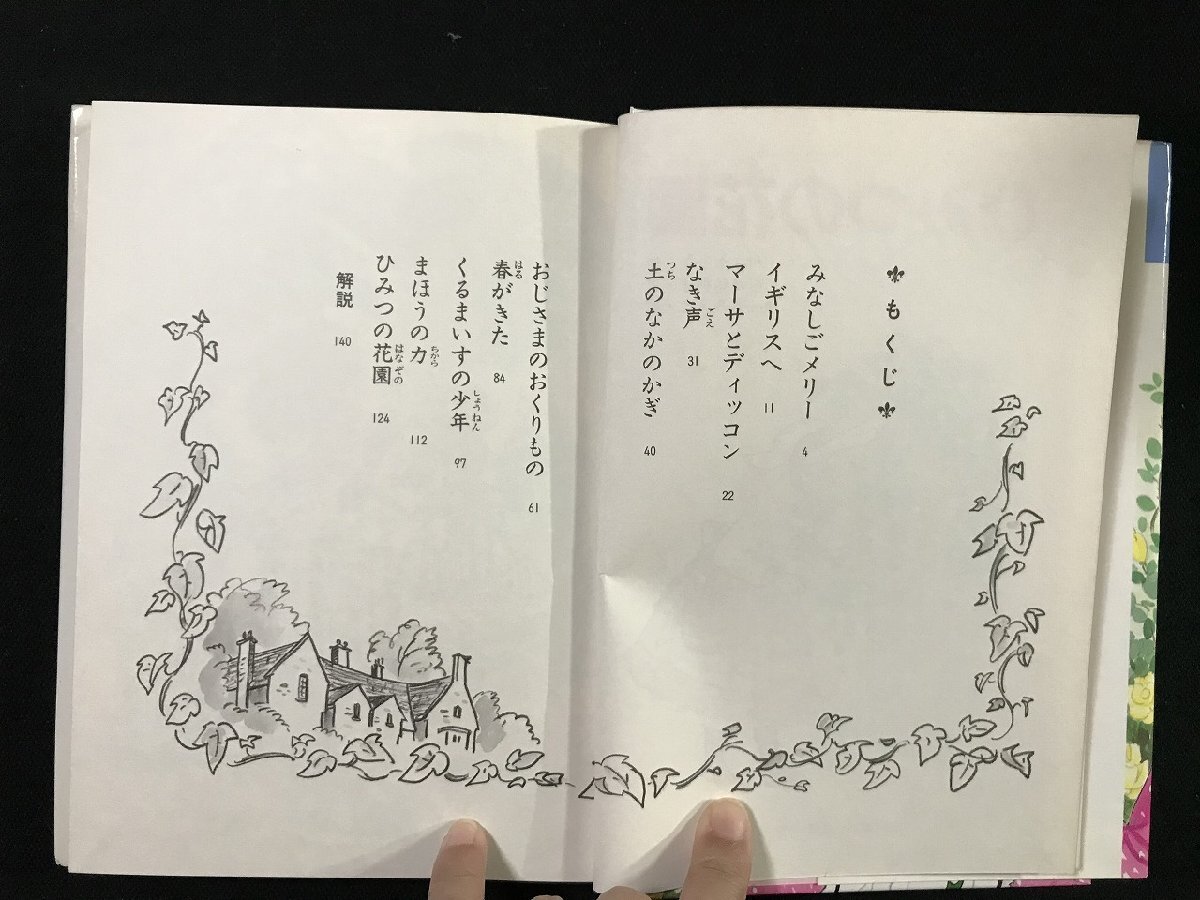 もくじ
みなしごメリー 4
イギリスへ 11
マーサとディッコン 22
なき声 31
土のなかのかぎ 40
おじさまのおくりもの 61
春がきた 84
くるまいすの少年 97
まほうの力 112
ひみつの花園 124
解説 140